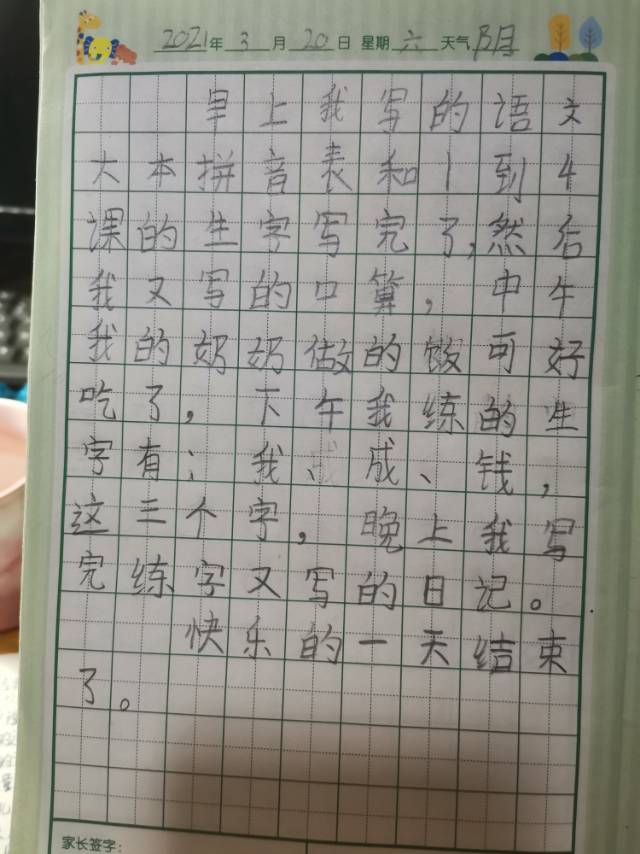 2021年3月20日 星期六 天气阴
早上我写的语文
大本拼音表和1到4
课的生字写完了,然后
我又写的口算，中午
我的奶奶做的饭可好
吃了，下午我练的生
字有：我、成、钱，
这三个字，晚上我写
完练字又写的日记。
快乐的一天结束
了。
家长签字：